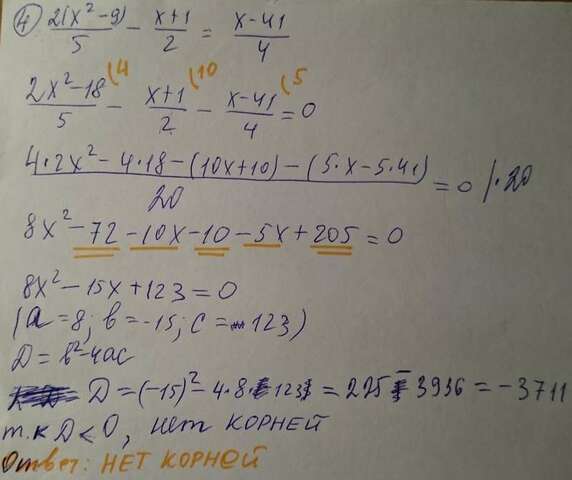 ④ 2(x²-9)/5 - x+1/2 = x-41/4
2x²-18/5 (4 - x+1/2 (10 - x-41/4 (5 = 0
4·2x²-4·18-(10x+10)-(5·x-5·41)/20 = 0 /·20
8x²-72-10x-10-5x+205=0
8x²-15x+123=0
(a=8; b=-15; c=123)
D=b²-4ac
D=(-15)²-4·8·123=225-3936=-3711
т.к D<0, нет корней
Ответ: НЕТ КОРНЕЙ